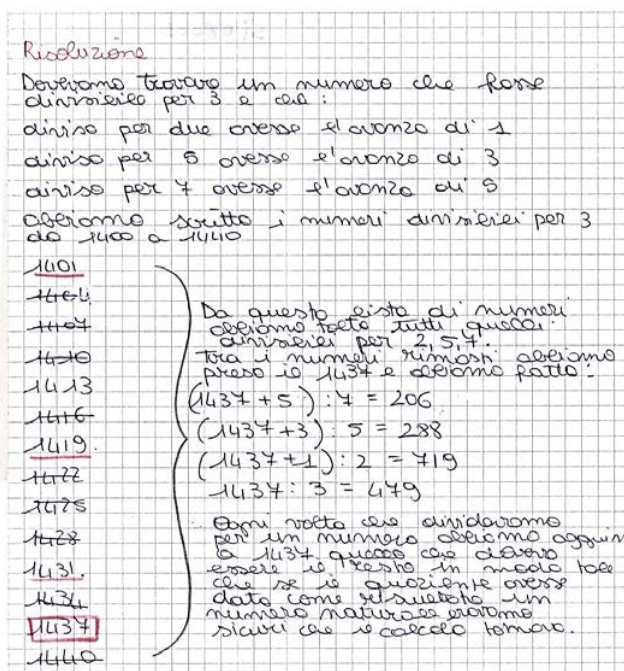 Risoluzione
Dovevamo trovare un numero che fosse
divisibile per 3 e che:
diviso per due avesse l'avanzo di 1
diviso per 5 avesse l'avanzo di 3
diviso per 7 avesse l'avanzo di 5
abbiamo scritto i numeri divisibili per 3
da 1400 a 1440
1401
1404
1407
1410
1413
1416
1419.
1422
1425
1428
1431.
1434
1437
1440
Da questa lista di numeri
abbiamo tolto tutti quelli
divisibili per 2, 5, 7.
Tra i numeri rimasti abbiamo
preso il 1437 e abbiamo fatto:
(1437 + 5) : 7 = 206
(1437 + 3) : 5 = 288
(1437 + 1) : 2 = 719
1437 : 3 = 479
Ogni volta che dividavamo
per un numero abbiamo aggiun
a 1437 quello che doveva
essere il resto in modo tale
che se il quoziente avesse
dato come risultato un
numero naturale eravamo
sicuri che il calcolo tornava.